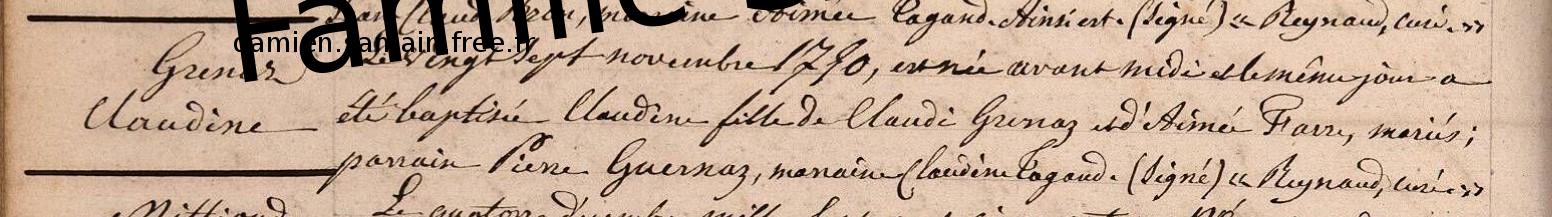 Jean Claude, marraine Aimée Pagand. Ainsi est. (Signé) « Reynaud, curé. »
Famille
damien.jamain.free.fr
Grenaz Le vingt sept novembre 1790, est née avant midi et le même jour a
Claudine été baptisée Claudine fille de Claude Grenaz et d'Aimée Farre, mariés;
parrain Pierre Guernaz, marraine Claudine Pagand. (Signé) « Reynaud, curé. »
Le quatorze décembre mil